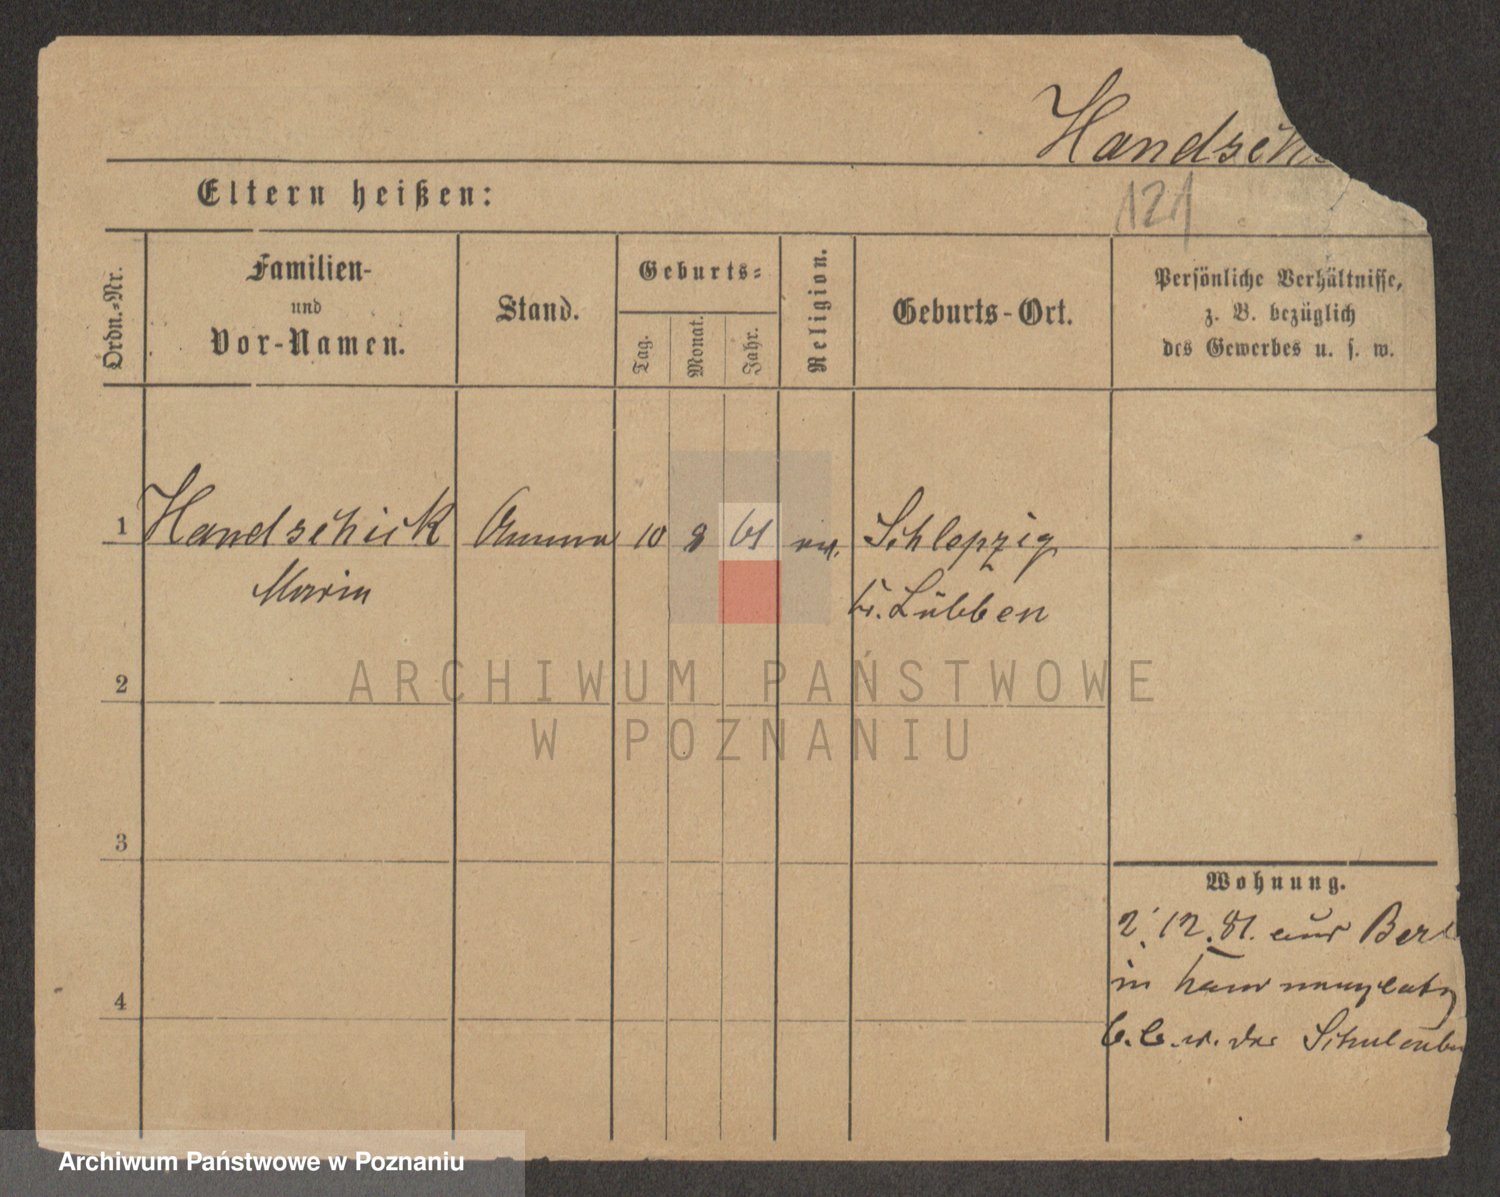 Handsch
121
Eltern heißen:
Ordn.-Nr.
Familien-
und
Vor-Namen.
Stand.
Geburts-
Tag.
Monat.
Jahr.
Religion.
Geburts-Ort.
Persönliche Verhältnisse,
z. B. bezüglich
des Gewerbes u. s. w.
1 Handschick Amme 10 8 61 ev. Schlepzig
Marie
Kr. Lübben
2
ARCHIWUM PAŃSTWOWE
W POZNANIU
3
4
Wohnung.
2. 12. 81. aus Berl
in
b. C. v. der Schulenbu
Archiwum Państwowe w Poznaniu